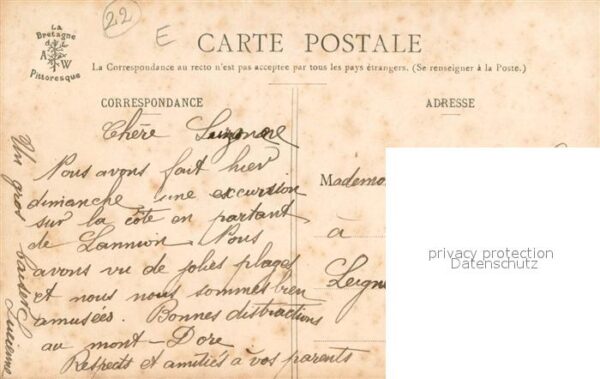 La
Bretagne
A W
Pittoresque
22
E
CARTE POSTALE
La Correspondance au recto n'est pas acceptée par tous les pays étrangers. (Se renseigner à la Poste.)
CORRESPONDANCE
ADRESSE
Chère
Nous avons fait hier
dimanche une excursion
sur la côte en partant
de Lannion. Nous
avons vu de jolies plages
et nous nous sommes bien
amusées. Bonnes distractions
au mont-Dore
Respects et amitiés à vos parents
Un gros baiser
Lucienne
Mademoi
à
privacy protection
Datenschutz